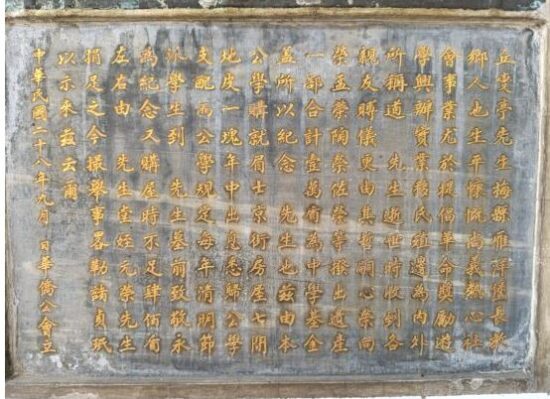 丘燮亭先生梅縣雁洋堡長教
鄉人也生平慷慨尚義熱心社
會事業尤於提倡革命獎勵遊
學興辦實業移民殖邊為內外
所稱道 先生逝世時收到各
親友賻儀更由其哲嗣心榮向
榮孟榮陶榮佐榮等撥出遺產
一部合計壹萬盾為中學基金
蓋所以紀念 先生也茲由本
公學購就眉士京街房屋七間
地皮一塊年中出息悉歸公學
支配為公學規定每年清明節
派學生到 先生墓前致敬永
為紀念又購屋時不足肆佰盾
左右由 先生堂姪元榮先生
捐足之今撮舉事畧勒諸貞珉
以示來茲云爾
中華民國二十八年九月 日華僑公會立